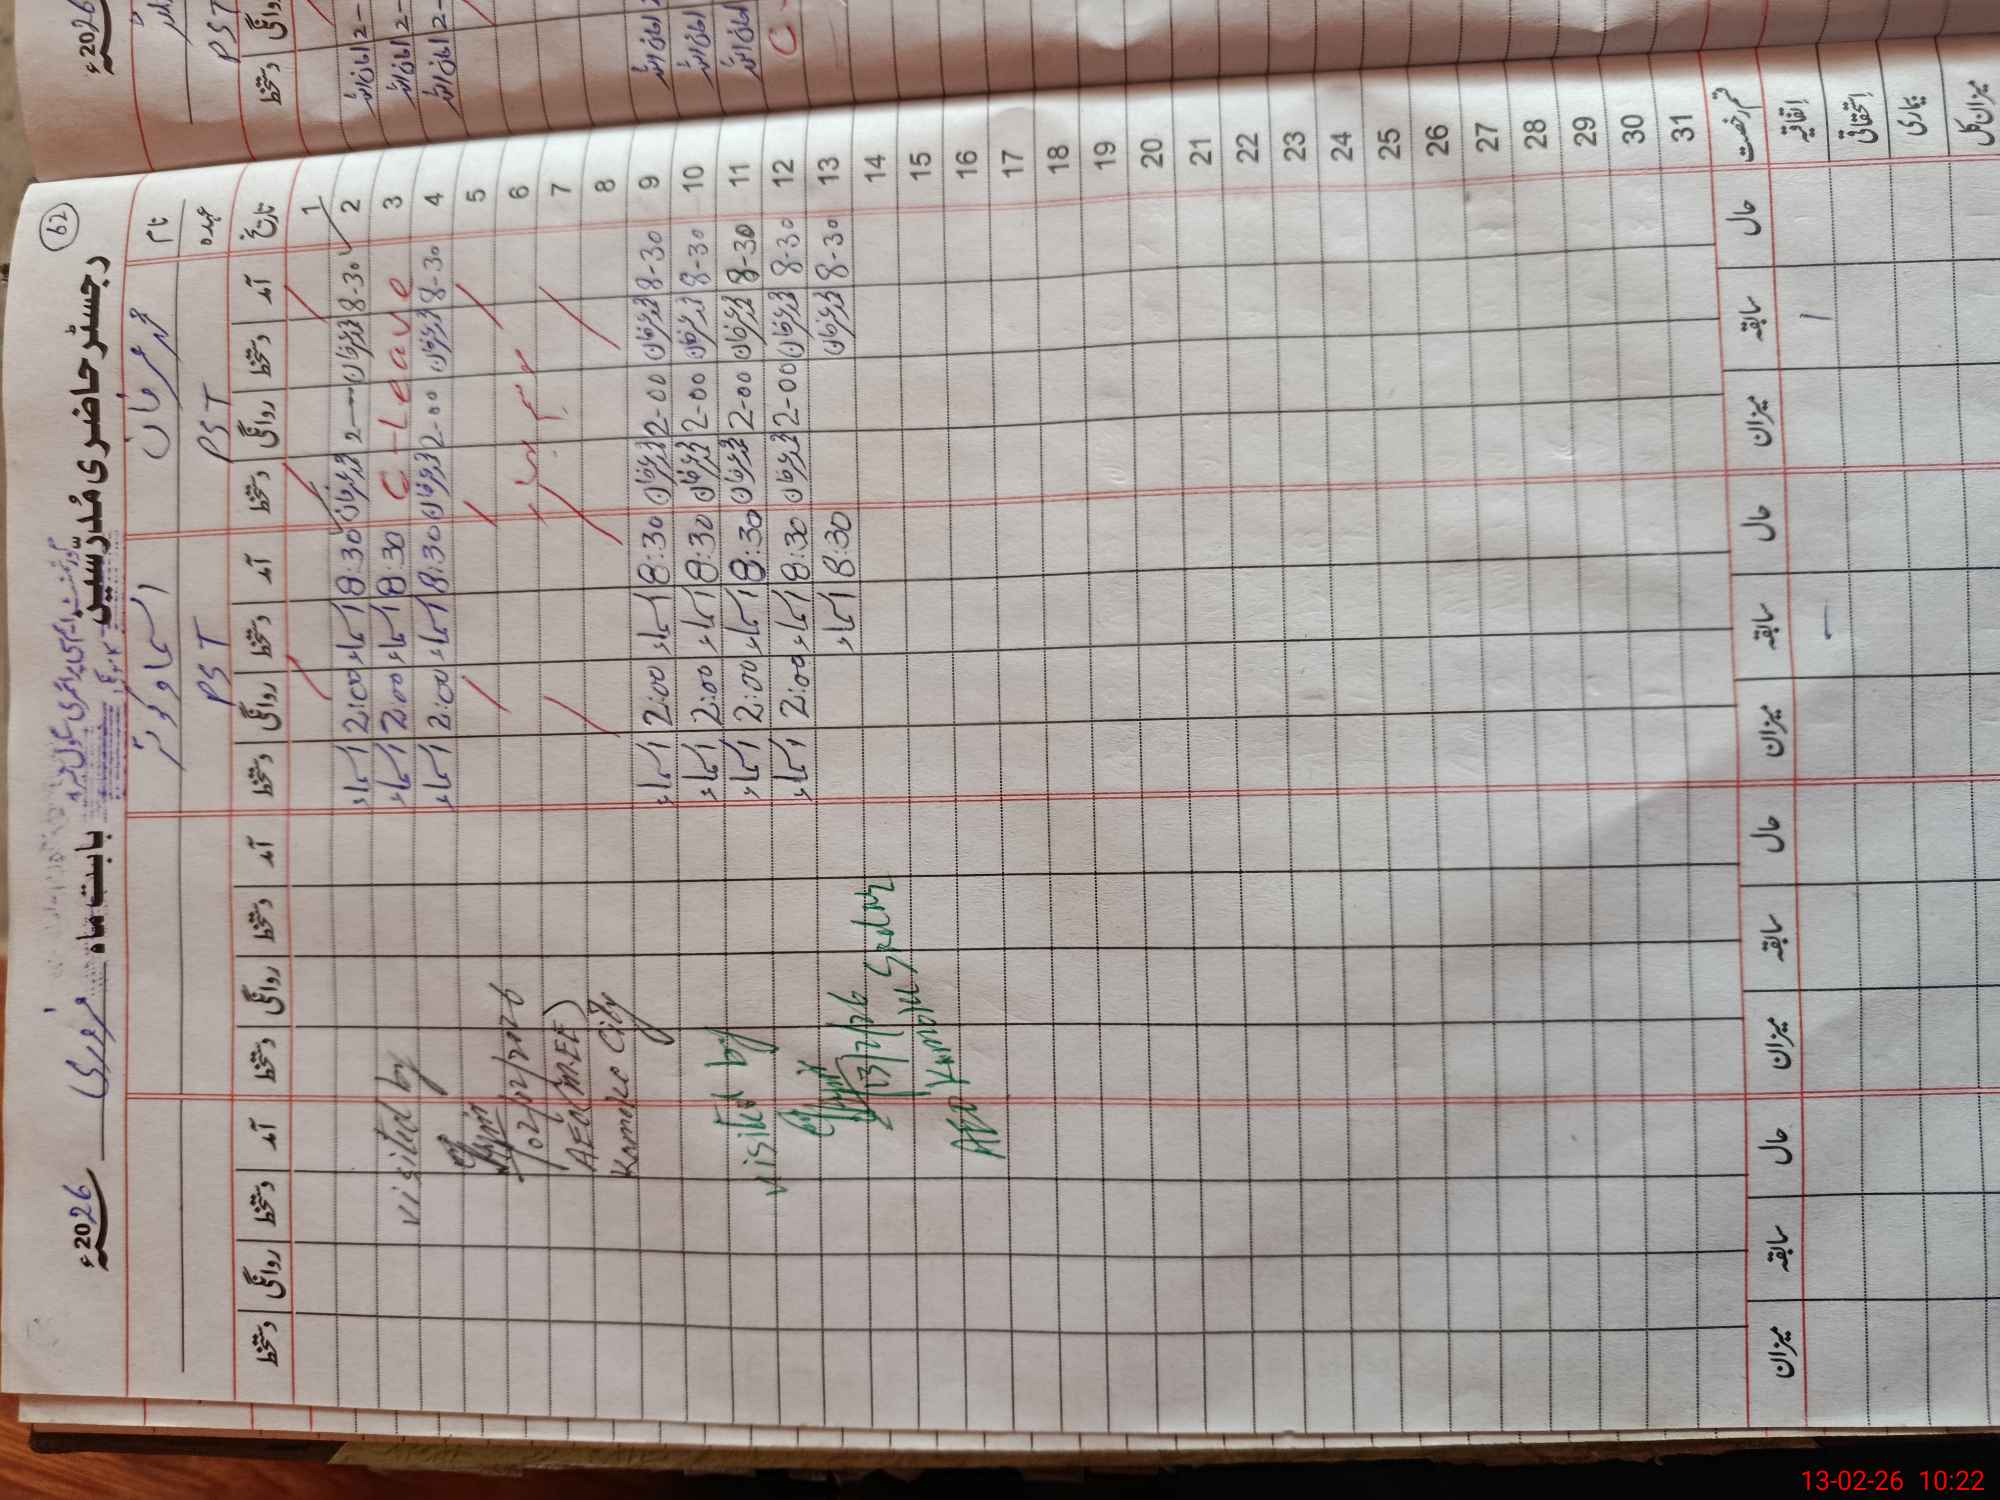 62
رجسٹر حاضری مُدرّسین بابت ماہ فروری 2026ء
نام محمد عرفان اسماء
عہدہ PST PST
تاریخ آمد دستخط روانگی دستخط آمد دستخط روانگی دستخط آمد دستخط روانگی دستخط آمد دستخط روانگی دستخط
1
2 8-30 عرفان 2 عرفان 8:30 اسماء 2:00 اسماء
3 C-Leave 8:30 اسماء 2:00 اسماء
4 8-30 عرفان 2-00 عرفان 8:30 اسماء 2:00 اسماء
5
6
7
8
9 8-30 عرفان 2-00 عرفان 8:30 اسماء 2:00 اسماء
10 8-30 عرفان 2-00 عرفان 8:30 اسماء 2:00 اسماء
11 8-30 عرفان 2-00 عرفان 8:30 اسماء 2:00 اسماء
12 8-30 عرفان 2-00 عرفان 8:30 اسماء 2:00 اسماء
13 8-30 عرفان 8:30 اسماء
14
15
16
17
18
19
20
21
22
23
24
25
26
27
28
29
30
31
visited by
02/02/2026
AEO (M.EE)
Kamoke City
visited by
13/2/26
AEO Kamoke Sadar
قسم رخصت حال سابقہ میزان حال سابقہ میزان حال سابقہ میزان حال سابقہ میزان
اتفاقیہ 1
استحقاقی
بیماری
میزان کل
2026ء
PST
روانگی دستخط
2-
2-
2-
C
13-02-26 10:22